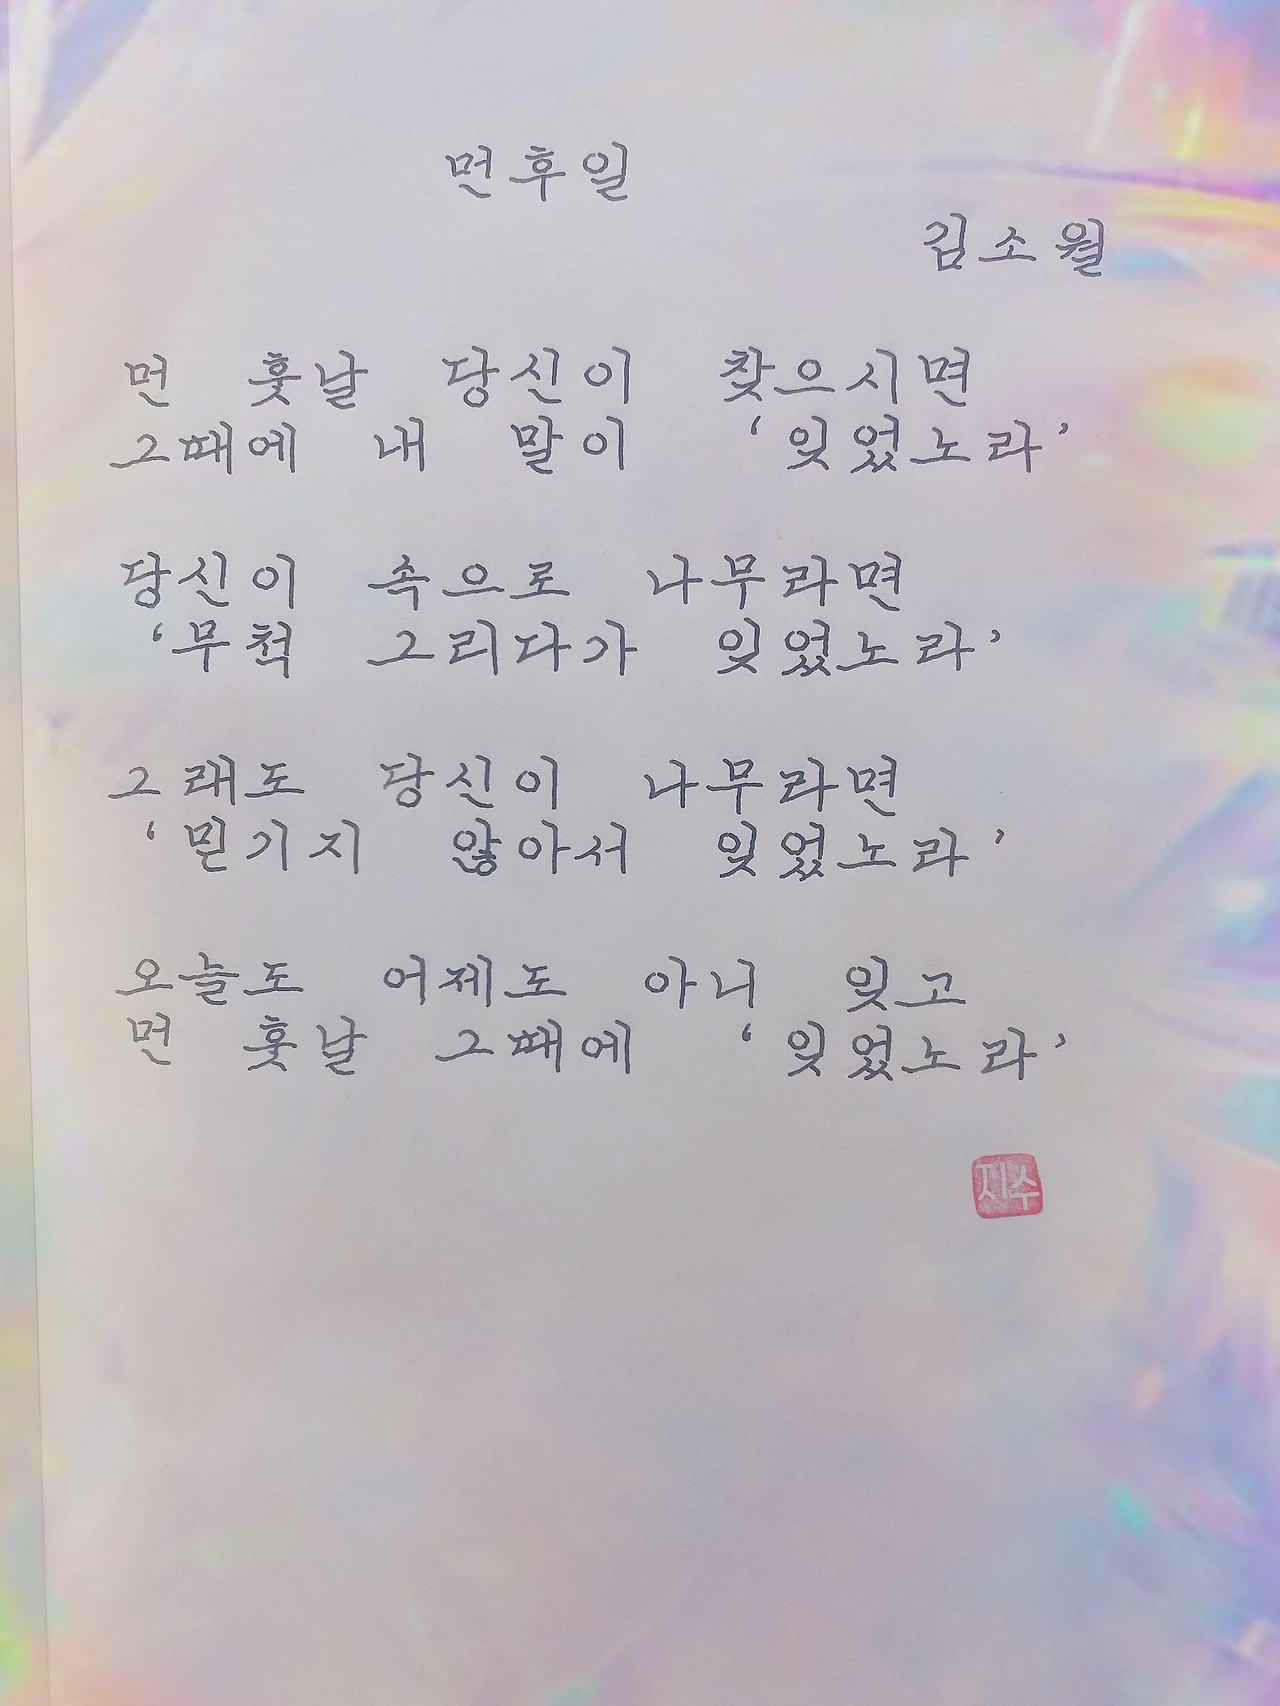 먼후일
김소월
먼 훗날 당신이 찾으시면
그때에 내 말이 ‘잊었노라’
당신이 속으로 나무라면
‘무척 그리다가 잊었노라’
그래도 당신이 나무라면
‘믿기지 않아서 잊었노라’
오늘도 어제도 아니 잊고
먼 훗날 그때에 ‘잊었노라’
지수